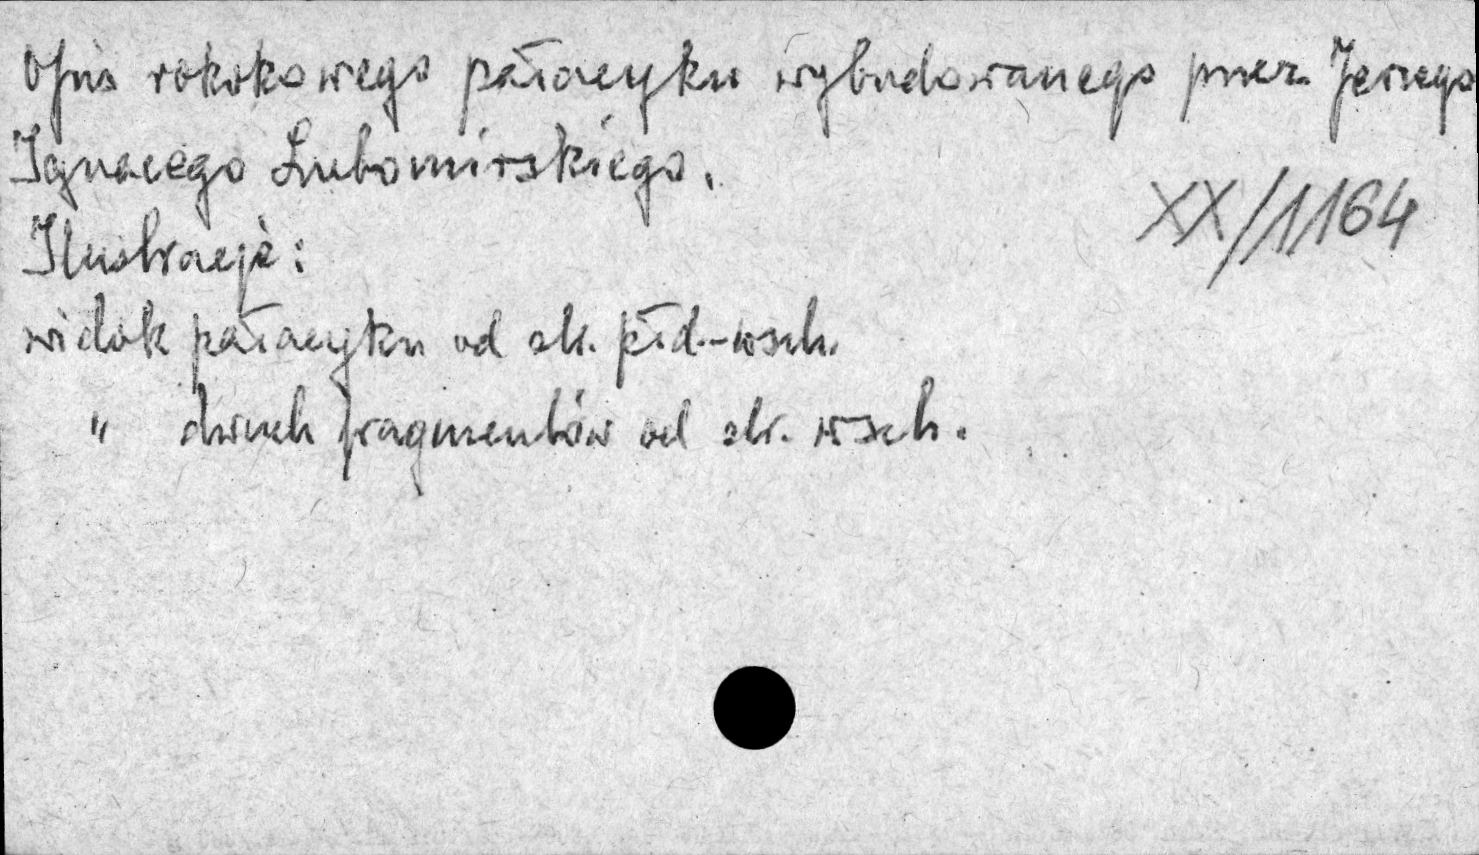 Opis rokokowego pałacyku wybudowanego przez Jerzego
Ignacego Lubomirskiego.
XX/1164
Ilustracje:
widok pałacyku od str. płd.-wsch.
" dwuch fragmentów od str. wsch.